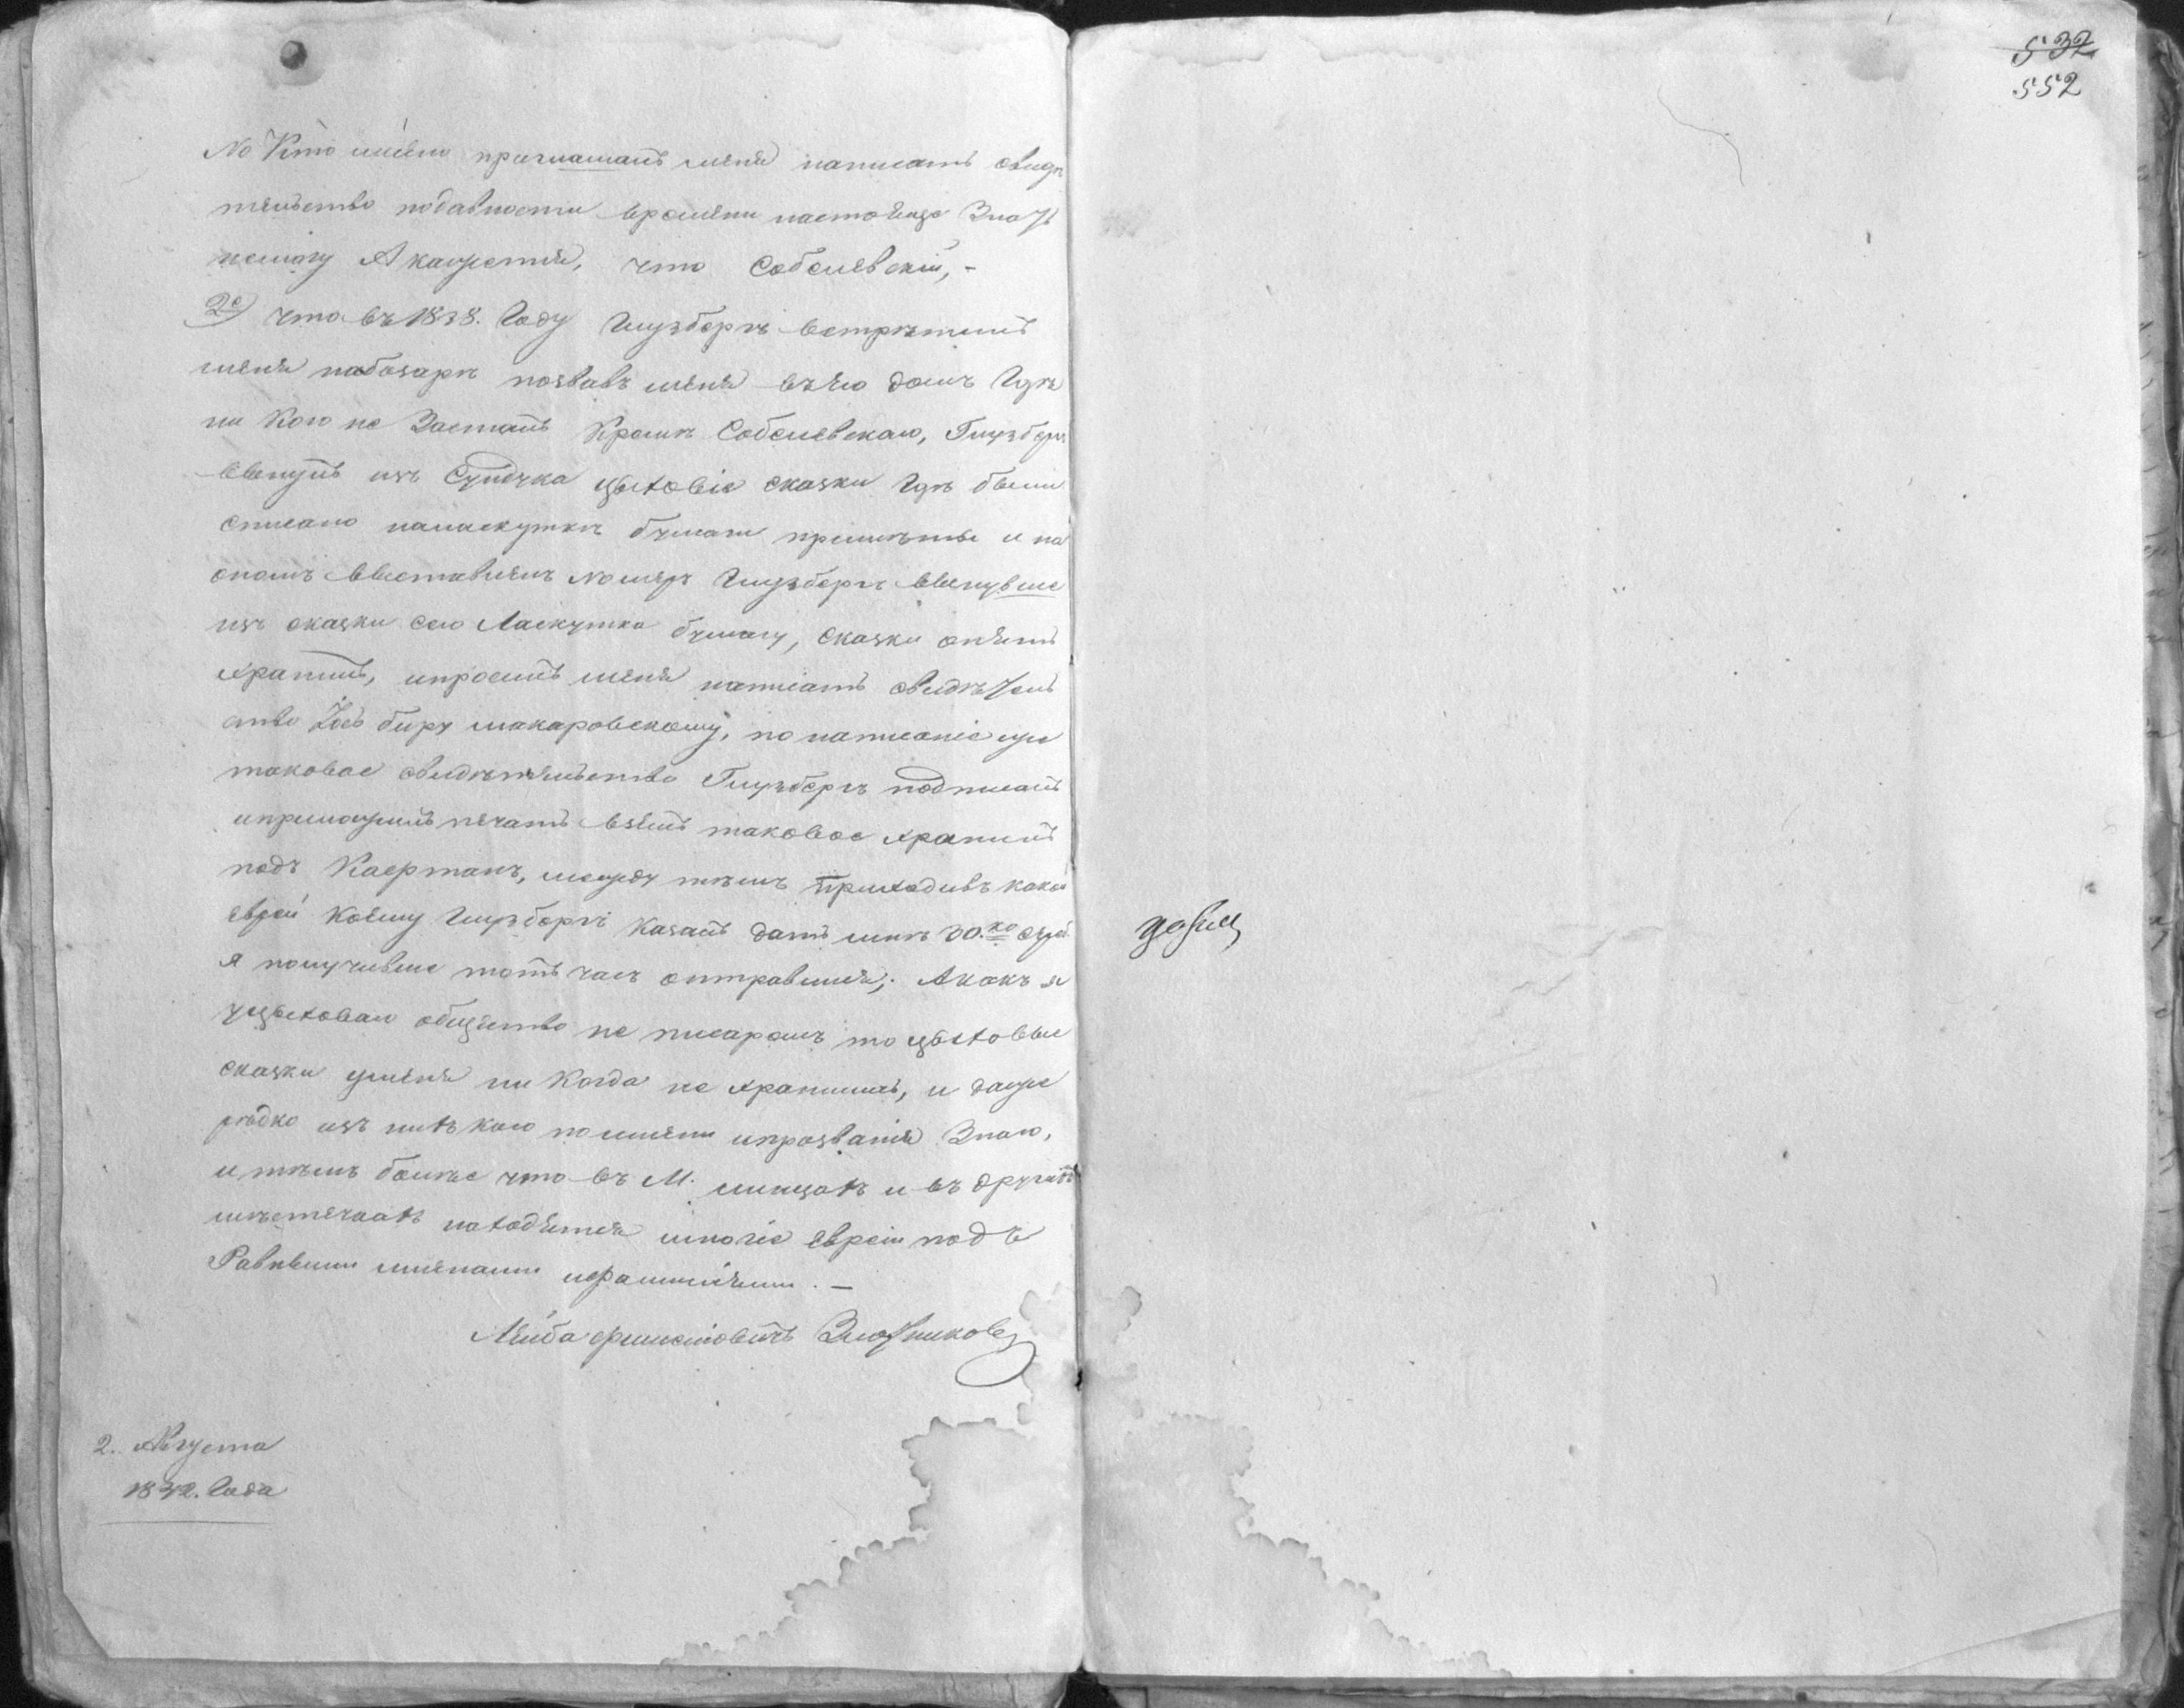 532
552
Но Кто имено приглашалъ меня написать свидѣ
тельство подавности времени настояще Знат
немогу Акажется, что Собелевскій, -
2е) что въ 1838. Году Гинзбергъ встрѣтилъ
меня набозарѣ позвавъ меня въ его домъ Гдѣ
ни Кого не Засталъ Кромѣ Собелевскаго, Гинзбергъ
вынулъ изъ Сундучка цеховіе сказки Гдѣ были
списано налоскуткѣ бумаги примѣты и на
ономъ выставленъ номеръ Гинзбергъ вынувше
изъ сказки сего Лоскутка бумагу, сказки опять
хранилъ, ипросилъ меня написать свидѣтель
ство биру макаровскому, по написаніе мною
таковое свидѣтельство Гинзбергъ подписалъ
иприложилъ печать взялъ таковое хранилъ
подъ Кафтанъ, между тѣмъ приходивъ какой
еврей Коему Гинзбергъ Казалъ дать мнѣ 30. ко сереб.
я получивше тотъ часъ отправился; Акакъ я
уцеховаго общество не писаромъ то цеховые
сказки уменя ни Когда не хранились, и даже
рѣдко изъ нихъ кого поимени ипрозванія Знаю,
и тѣмъ болѣе что въ М. минцахъ и въ другихъ
мѣстечкахъ находятся многіе евреи подъ
Равными именами ифамиліями. -
Лейба Злотниковъ
2. Августа
1842. Года